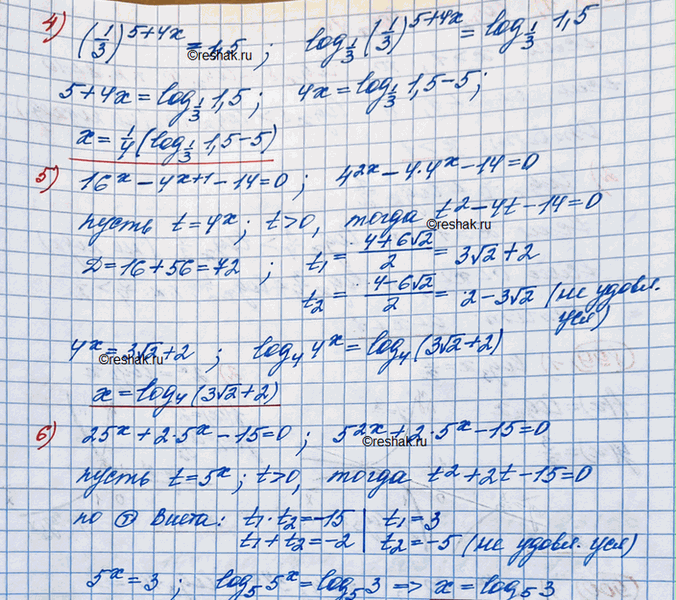 4) (1/3)^(5+4x) = 1,5 ; log_(1/3) (1/3)^(5+4x) = log_(1/3) 1,5
5+4x = log_(1/3) 1,5 ; 4x = log_(1/3) 1,5 - 5 ;
x = 1/4 (log_(1/3) 1,5 - 5)
5) 16^x - 4^(x+1) - 14 = 0 ; 4^(2x) - 4·4^x - 14 = 0
пусть t = 4^x ; t > 0, тогда t² - 4t - 14 = 0
©reshak.ru
Д = 16 + 56 = 72 ; t₁ = (4+6√2)/2 = 3√2 + 2
t₂ = (4-6√2)/2 = 2 - 3√2 (не удовл.
усл)
4^x = 3√2 + 2 ; log₄ 4^x = log₄ (3√2 + 2)
©reshak.ru
x = log₄ (3√2 + 2)
6) 25^x + 2·5^x - 15 = 0 ; 5^(2x) + 2·5^x - 15 = 0
©reshak.ru
пусть t = 5^x ; t > 0, тогда t² + 2t - 15 = 0
по Ⓣ Виета: t₁·t₂ = -15 | t₁ = 3
t₁ + t₂ = -2 | t₂ = -5 (не удовл. усл)
5^x = 3 ; log₅ 5^x = log₅ 3 => x = log₅ 3
©reshak.ru